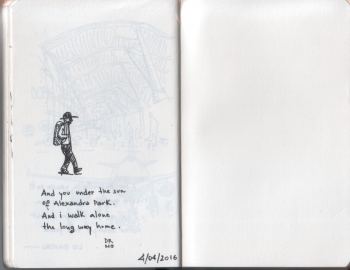 And you under the sun
of Alexandra Park.
And i walk alone
the long way home.
4/04/2016